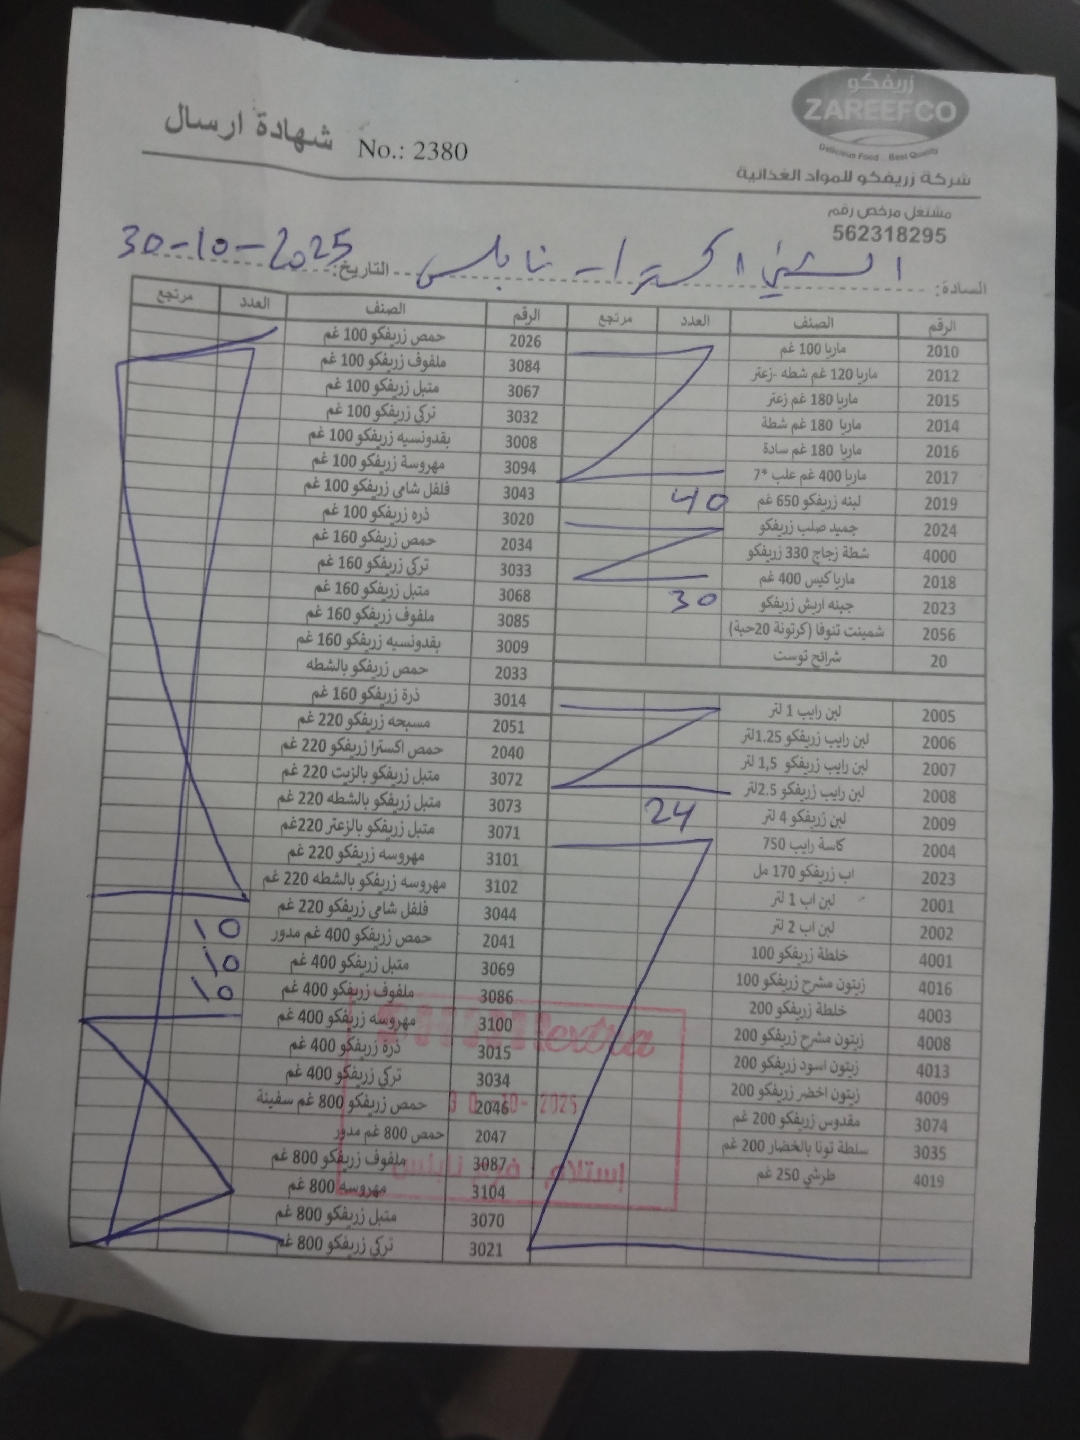 زريفكو
ZAREEFCO
Delicious Food .. Best Quality
شركة زريفكو للمواد الغذائية
شهادة ارسال
No.: 2380
مشتغل مرخص رقم
562318295
السادة: الشني اكسترا - نابلس
التاريخ: 30-10-2025
الرقم الصنف العدد مرتجع
2010 ماريا 100 غم
2012 ماريا 120 غم شطه -زعتر
2015 ماريا 180 غم زعتر
2014 ماريا 180 غم شطة
2016 ماريا 180 غم سادة
2017 ماريا 400 غم علب *7
2019 لبنه زريفكو 650 غم 40
2024 جميد صلب زريفكو
4000 شطة زجاج 330 زريفكو
2018 ماريا كيس 400 غم
2023 جبنه اريش زريفكو 30
2056 شمينت تنوفا (كرتونة 20حبة)
20 شرائح توست
2005 لبن رايب 1 لتر
2006 لبن رايب زريفكو 1.25لتر
2007 لبن رايب زريفكو 1,5 لتر
2008 لبن رايب زريفكو 2.5لتر
2009 لبن زريفكو 4 لتر 24
2004 كاسة رايب 750
2023 اب زريفكو 170 مل
2001 لبن اب 1 لتر
2002 لبن اب 2 لتر
4001 خلطة زريفكو 100
4016 زيتون مشرح زريفكو 100
4003 خلطة زريفكو 200
4008 زيتون مشرح زريفكو 200
4013 زيتون اسود زريفكو 200
4009 زيتون اخضر زريفكو 200
3074 مقدوس زريفكو 200 غم
3035 سلطة تونا بالخضار 200 غم
4019 طرشي 250 غم
الرقم الصنف العدد مرتجع
2026 حمص زريفكو 100 غم
3084 ملفوف زريفكو 100 غم
3067 متبل زريفكو 100 غم
3032 تركي زريفكو 100 غم
3008 بقدونسيه زريفكو 100 غم
3094 مهروسة زريفكو 100 غم
3043 فلفل شامي زريفكو 100 غم
3020 ذره زريفكو 100 غم
2034 حمص زريفكو 160 غم
3033 تركي زريفكو 160 غم
3068 متبل زريفكو 160 غم
3085 ملفوف زريفكو 160 غم
3009 بقدونسيه زريفكو 160 غم
2033 حمص زريفكو بالشطه
3014 ذرة زريفكو 160 غم
2051 مسبحه زريفكو 220 غم
2040 حمص اكسترا زريفكو 220 غم
3072 متبل زريفكو بالزيت 220 غم
3073 متبل زريفكو بالشطه 220 غم
3071 متبل زريفكو بالزعتر 220غم
3101 مهروسه زريفكو 220 غم
3102 مهروسه زريفكو بالشطه 220 غم
3044 فلفل شامي زريفكو 220 غم
2041 حمص زريفكو 400 غم مدور 10
3069 متبل زريفكو 400 غم 10
3086 ملفوف زريفكو 400 غم 10
3100 مهروسه زريفكو 400 غم
3015 ذرة زريفكو 400 غم
3034 تركي زريفكو 400 غم
2046 حمص زريفكو 800 غم سفينة
2047 حمص 800 غم مدور
3087 ملفوف زريفكو 800 غم
3104 مهروسه 800 غم
3070 متبل زريفكو 800 غم
3021 تركي زريفكو 800 غم
extra
30 -10- 2025
إستلام فرع نابلس